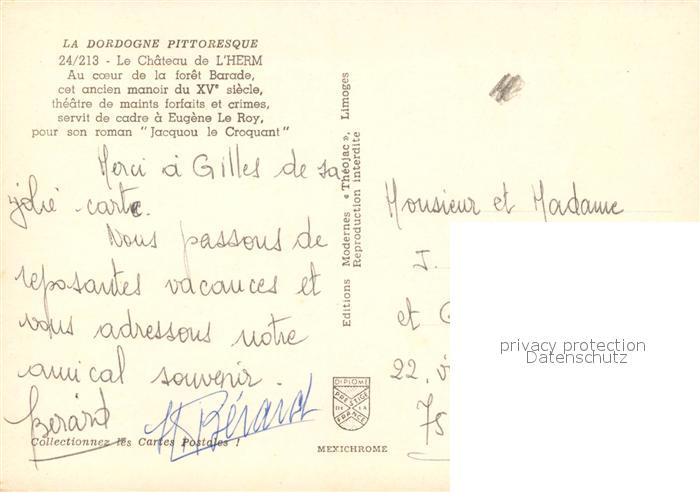 LA DORDOGNE PITTORESQUE
24/213 - Le Château de L'HERM
Au cœur de la forêt Barade,
cet ancien manoir du XVe siècle,
théâtre de maints forfaits et crimes,
servit de cadre à Eugène Le Roy,
pour son roman "Jacquou le Croquant"
Merci à Gilles de sa
jolie carte.
Nous passons de
reposantes vacances et
vous adressons notre
amical souvenir.
Bérard
Bérard
Collectionnez les Cartes Postales !
Editions Modernes « Théojac », Limoges
Reproduction interdite
DIPLOME
PRESTIGE
DE LA
FRANCE
MEXICHROME
Monsieur et Madame
J.
et G
22, v
75
privacy protection
Datenschutz